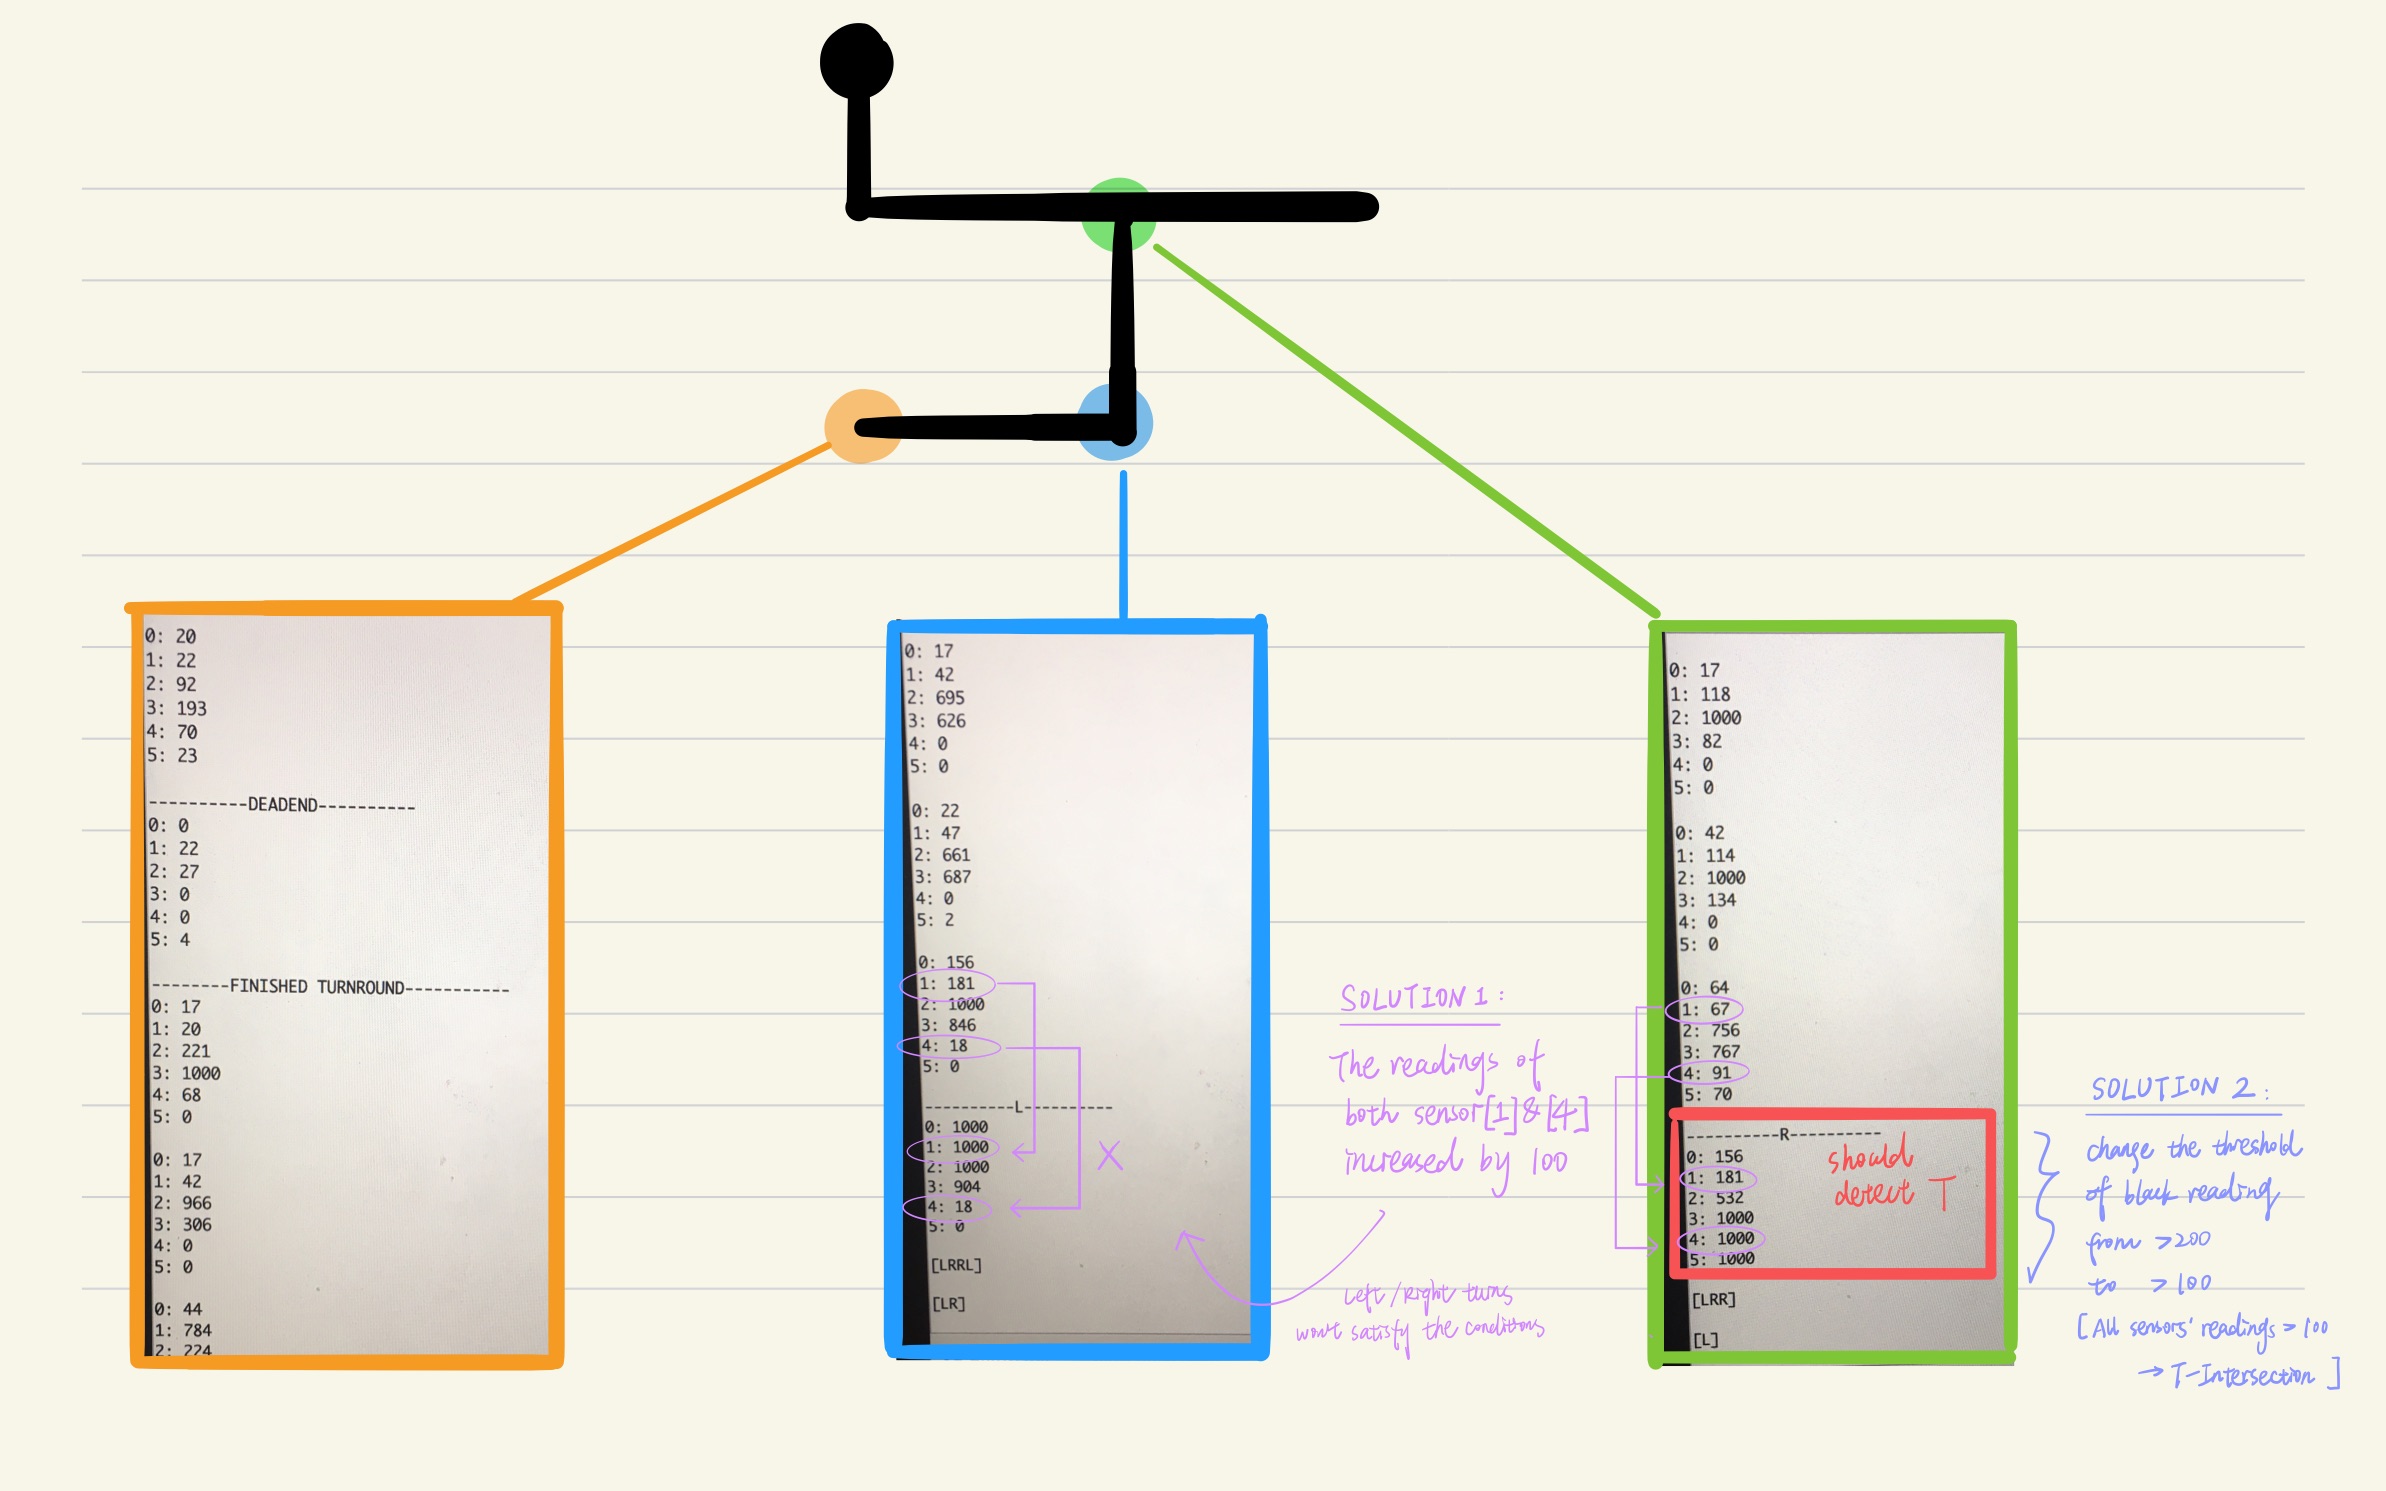 0: 20
1: 22
2: 92
3: 193
4: 70
5: 23
----------DEADEND----------
0: 0
1: 22
2: 27
3: 0
4: 0
5: 4
--------FINISHED TURNROUND-----------
0: 17
1: 20
2: 221
3: 1000
4: 68
5: 0
0: 17
1: 42
2: 966
3: 306
4: 0
5: 0
0: 44
1: 784
2: 224
0: 17
1: 42
2: 695
3: 626
4: 0
5: 0
0: 22
1: 47
2: 661
3: 687
4: 0
5: 2
0: 156
1: 181
2: 1000
3: 846
4: 18
5: 0
----------L----------
0: 1000
1: 1000
2: 1000
3: 904
4: 18
5: 0
[LRRL]
[LR]
X
SOLUTION 1:
The readings of
both sensor[1]&[4]
increased by 100
Left/Right turns
won't satisfy the conditions
0: 17
1: 118
2: 1000
3: 82
4: 0
5: 0
0: 42
1: 114
2: 1000
3: 134
4: 0
5: 0
0: 64
1: 67
2: 756
3: 767
4: 91
5: 70
----------R----------
0: 156
1: 181
2: 532
3: 1000
4: 1000
5: 1000
should
detect T
[LRR]
[L]
SOLUTION 2:
change the threshold
of black reading
from >200
to >100
[All sensors' readings > 100
→ T-Intersection]